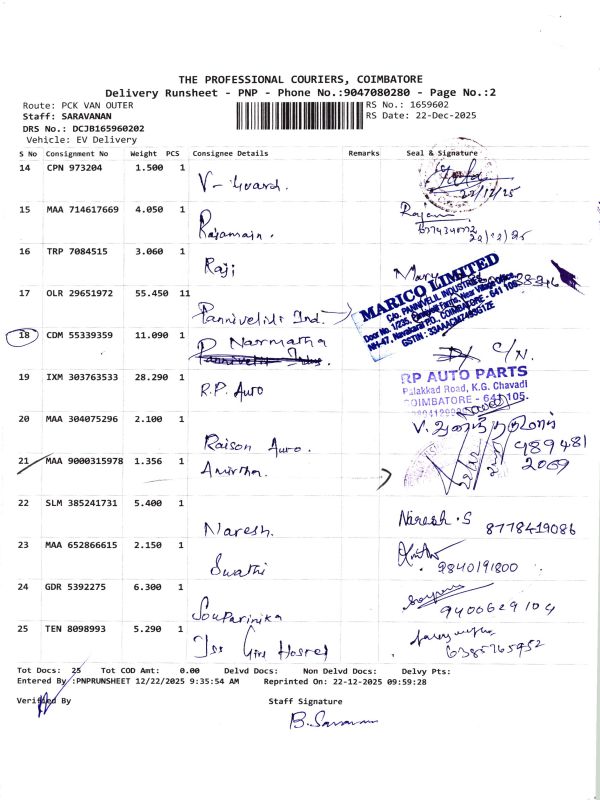 THE PROFESSIONAL COURIERS, COIMBATORE
Delivery Runsheet - PNP - Phone No.:9047080280 - Page No.:2
Route: PCK VAN OUTER RS No.: 1659602
Staff: SARAVANAN RS Date: 22-Dec-2025
DRS No.: DCJB165960202
Vehicle: EV Delivery
S No Consignment No Weight PCS Consignee Details Remarks Seal & Signature
14 CPN 973204 1.500 1 V-Guard. 22/12/25
15 MAA 714617669 4.050 1 Rajamain. Rajam
22/12/25
16 TRP 7084515 3.060 1 Raji Mary
17 OLR 29651972 55.450 11 Pannivelil Ind.
MARICO LIMITED
C/o. PANNIVELIL INDUSTRIES,
Door No. 1/235, Farms, Near Village Office,
NH-47, Navakarai P.O., COIMBATORE - 641 105.
GSTIN : 33AAACM7493G1ZE
18 CDM 55339359 11.090 1 P Narmatha C/N.
19 IXM 303763533 28.290 1 R.P. Auto
RP AUTO PARTS
Palakkad Road, K.G. Chavadi
COIMBATORE - 641 105.
20 MAA 304075296 2.100 1 Raison Auro.
21 MAA 9000315978 1.356 1 Amirtha. 489481
2069
22 SLM 385241731 5.400 1 Naresh. Naresh.S 8778419086
23 MAA 652866615 2.150 1 Swathi 9840191800
24 GDR 5392275 6.300 1 Souparinika 9400629104
25 TEN 8098993 5.290 1 Girls Hostel 6385765952
Tot Docs: 25 Tot COD Amt: 0.00 Delvd Docs: Non Delvd Docs: Delvy Pts:
Entered By :PNPRUNSHEET 12/22/2025 9:35:54 AM Reprinted On: 22-12-2025 09:59:28
Verified By Staff Signature
B. Saravanan